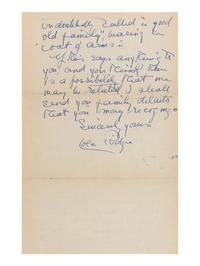 undoubtedly called "a good
old family" bearing a
coat of arms.
If this says anything to
you and you think there
is a possibility that we
may be related I shall
send you family details
that you may recog-
Sincerely yours
Lola Ridge